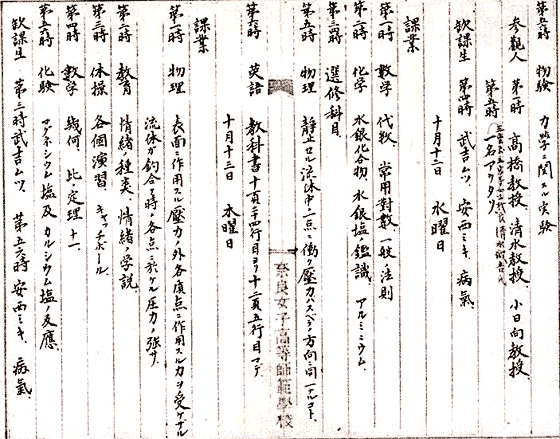 第五時 力學ニ関スル実験
参観人 第一時 高橋教授 清水教授 小日向教授
第五時
欽課生 第四時 武吉ムツ、安西ミキ 病氣
十月十二日 水曜日
課業
第一時 数学 代数、常用対數一般ノ法則
第二時 化学 水銀化合物 水銀塩ノ鑑識 アルミニウム
第三四時 選修科目
第五時 物理 静止セル流体中ノ一点ニ働ク壓力ハスベテノ方向ニ同一ナルコト
第六時 英語 教科書十頁二十四行目ヨリ十二頁五行目マデ
奈良女子高等師範學校
十月十三日 木曜日
課業
第一時 物理 表面ニ作用スル壓力ノ外各質点ニ作用スル力ヲ受ケザル
流体ガ釣合フ時ノ各点ニ於ケル圧力ノ強サ
第二時 教育 情緒ノ種類、情緒ノ学説
第三時 体操 各個演習 キャッチボール
第四時 数学 幾何、比、定理十一
第五六時 化験 マグネシウム塩及カルシウム塩ノ反應
欽課生 第三時 武吉ムツ、 第五六時 安西ミキ、病氣